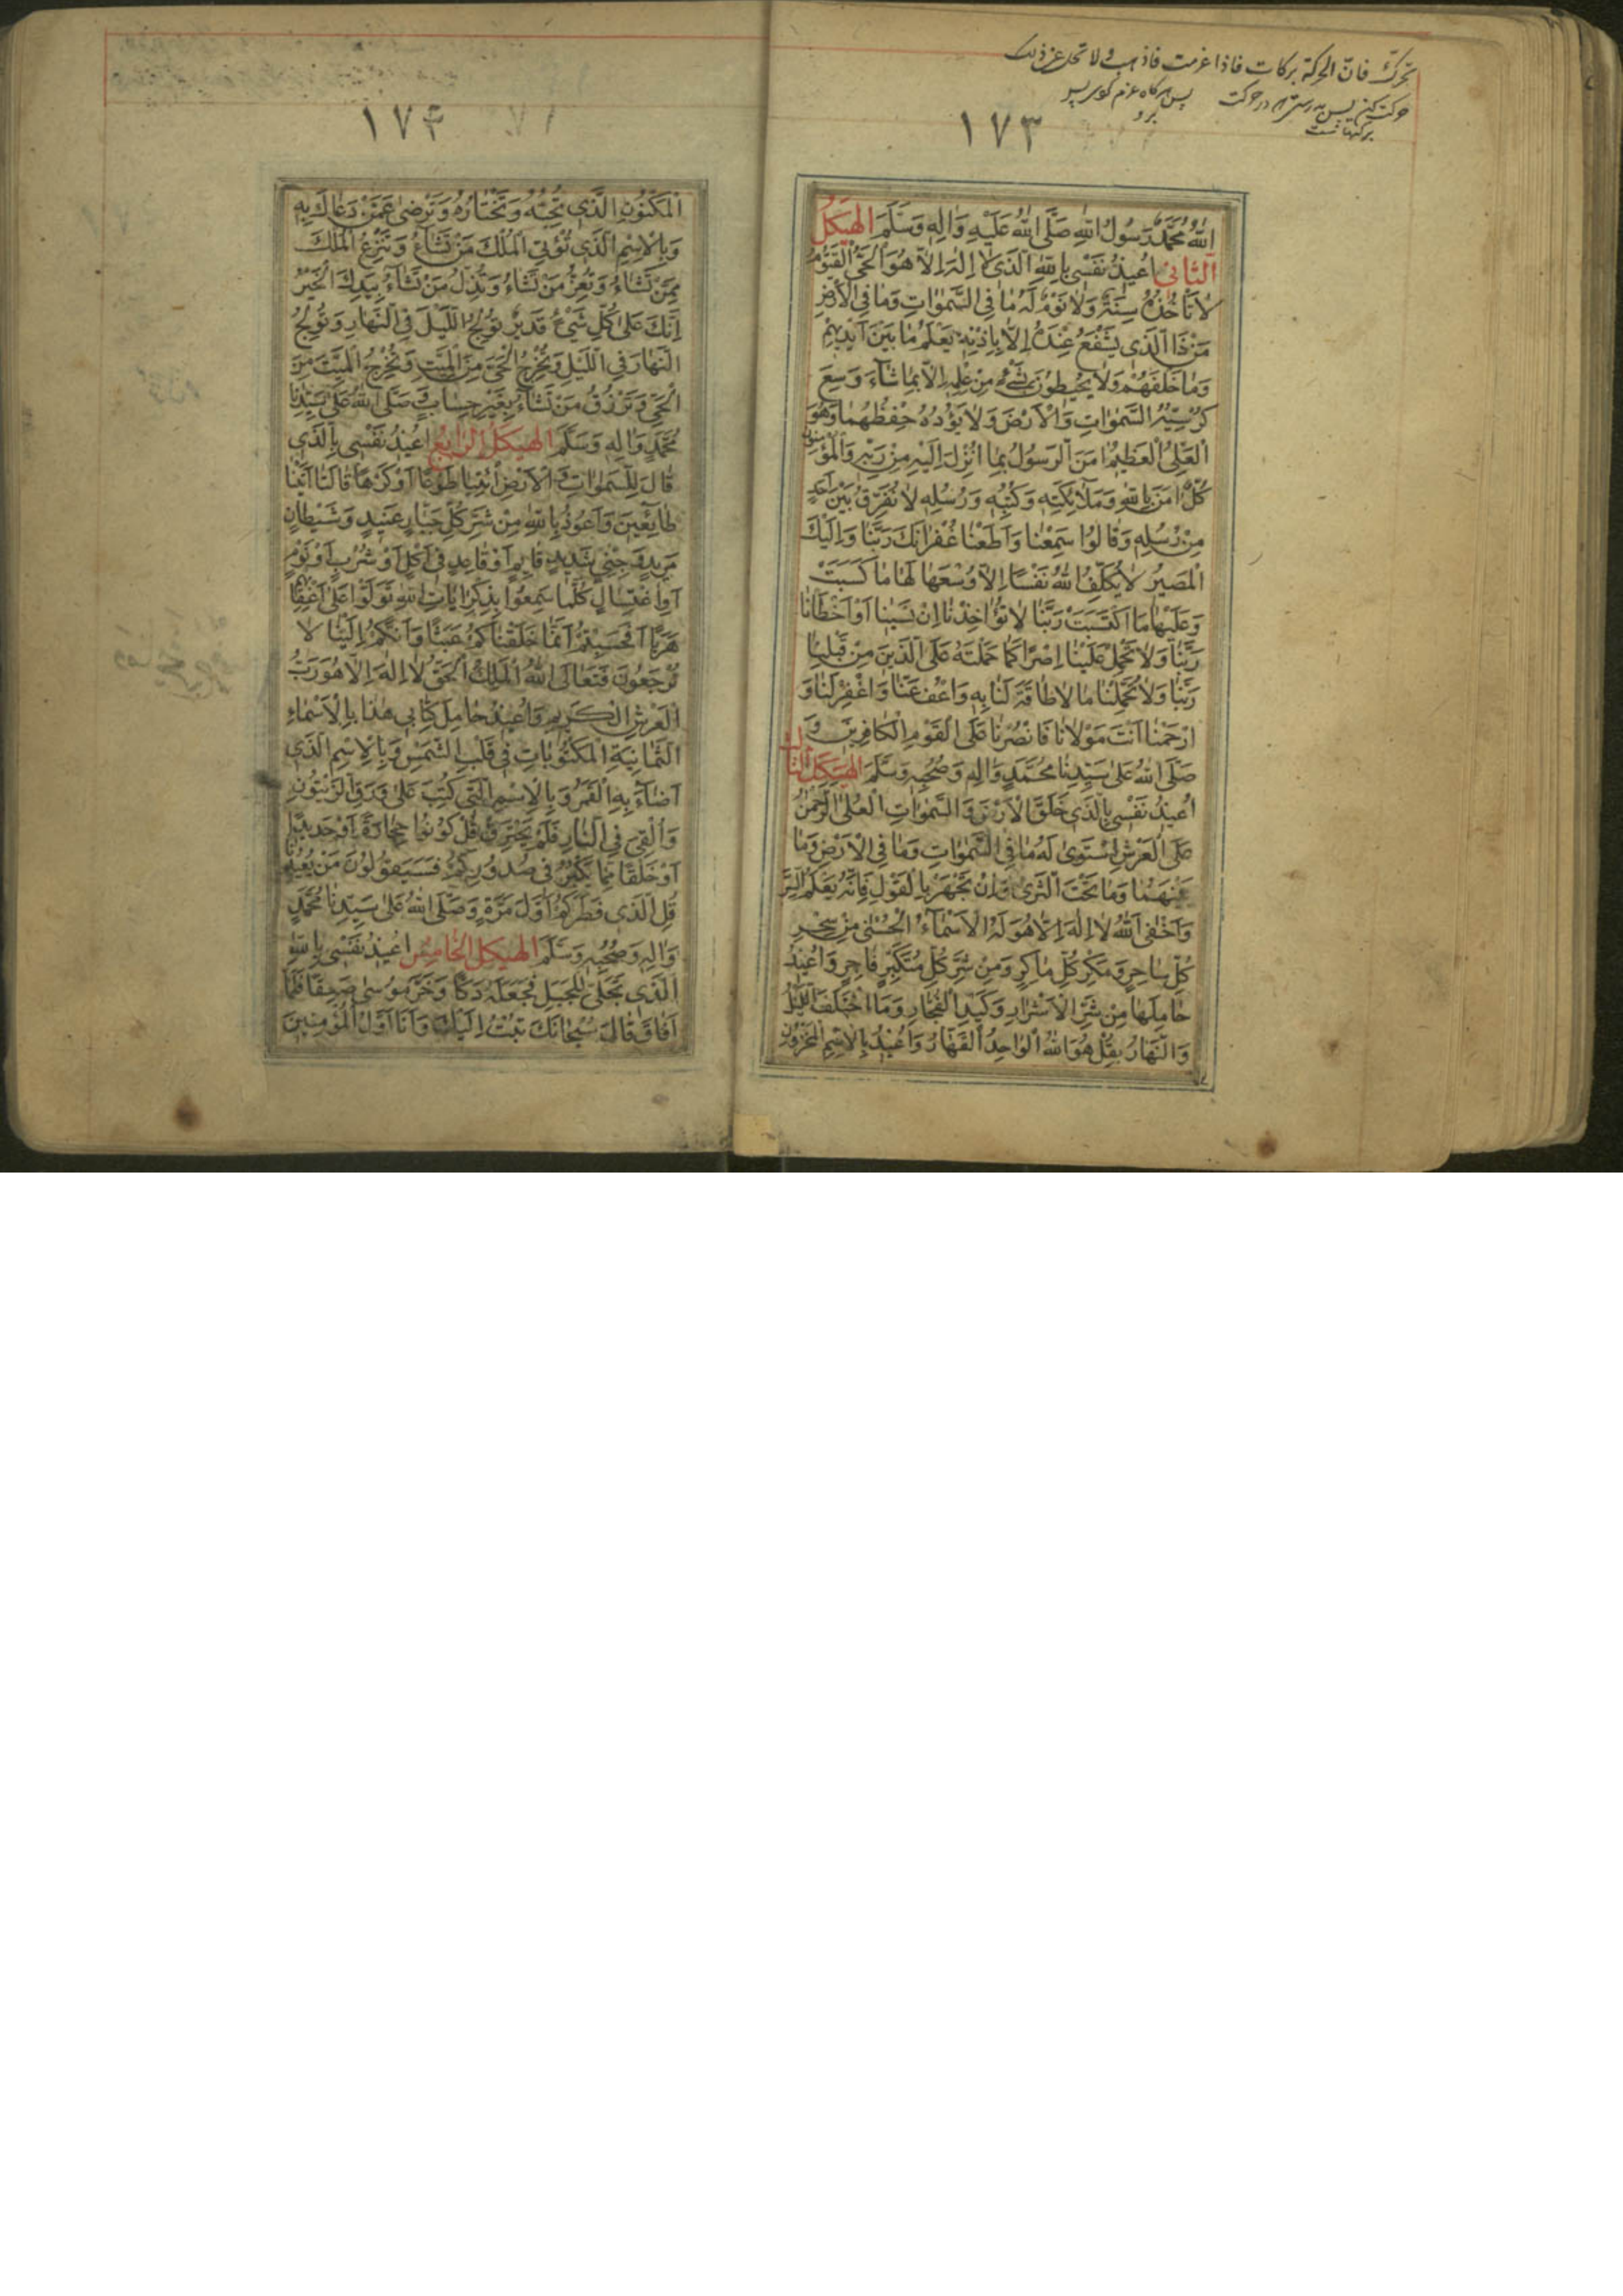 تحرّك فانّ الحركة بركات فاذا عزمت فاذهب ولا تحل عن ذلك
حركت كن پس بدرستى در حركت پس هرگاه عزم كوى پس
بركتهاست برو
١٧٣
اللهُ مُحَمَّدٌ رَسُولُ اللهِ صَلَّى اللهُ عَلَيْهِ وَاٰلِهٖ وَسَلَّمَ الهَيْكَلُ
الثّانِىْ اُعِيذُ نَفْسِى بِاللهِ الَّذِى لَا اِلٰهَ اِلَّا هُوَ الْحَىُّ الْقَيُّومُ
لَا تَأْخُذُهُ سِنَةٌ وَلَا نَوْمٌ لَهُ مَا فِى السَّمٰوَاتِ وَمَا فِى الْاَرْضِ
مَنْ ذَا الَّذِى يَشْفَعُ عِنْدَهُ اِلَّا بِاِذْنِهٖ يَعْلَمُ مَا بَيْنَ اَيْدِيهِمْ
وَمَا خَلْفَهُمْ وَلَا يُحِيطُونَ بِشَىْءٍ مِنْ عِلْمِهٖ اِلَّا بِمَا شَاءَ وَسِعَ
كُرْسِيُّهُ السَّمٰوَاتِ وَالْاَرْضَ وَلَا يَؤُدُهُ حِفْظُهُمَا وَهُوَ
الْعَلِىُّ الْعَظِيمُ اٰمَنَ الرَّسُولُ بِمَا اُنْزِلَ اِلَيْهِ مِنْ رَبِّهٖ وَالْمُؤْمِنُونَ
كُلٌّ اٰمَنَ بِاللهِ وَمَلَائِكَتِهٖ وَكُتُبِهٖ وَرُسُلِهٖ لَا نُفَرِّقُ بَيْنَ اَحَدٍ
مِنْ رُسُلِهٖ وَقَالُوا سَمِعْنَا وَاَطَعْنَا غُفْرَانَكَ رَبَّنَا وَاِلَيْكَ
الْمَصِيرُ لَا يُكَلِّفُ اللهُ نَفْسًا اِلَّا وُسْعَهَا لَهَا مَا كَسَبَتْ
وَعَلَيْهَا مَا اكْتَسَبَتْ رَبَّنَا لَا تُؤَاخِذْنَا اِنْ نَسِينَا اَوْ اَخْطَأْنَا
رَبَّنَا وَلَا تَحْمِلْ عَلَيْنَا اِصْرًا كَمَا حَمَلْتَهُ عَلَى الَّذِينَ مِنْ قَبْلِنَا
رَبَّنَا وَلَا تُحَمِّلْنَا مَا لَا طَاقَةَ لَنَا بِهٖ وَاعْفُ عَنَّا وَاغْفِرْ لَنَا وَ
ارْحَمْنَا اَنْتَ مَوْلَانَا فَانْصُرْنَا عَلَى الْقَوْمِ الْكَافِرِينَ وَ
صَلَّى اللهُ عَلٰى سَيِّدِنَا مُحَمَّدٍ وَاٰلِهٖ وَصَحْبِهٖ وَسَلَّمَ الهَيْكَلُ الثالث
اُعِيذُ نَفْسِى بِالَّذِى خَلَقَ الْاَرْضَ وَالسَّمٰوَاتِ الْعُلَى الرَّحْمٰنُ
عَلَى الْعَرْشِ اسْتَوٰى لَهُ مَا فِى السَّمٰوَاتِ وَمَا فِى الْاَرْضِ وَمَا
بَيْنَهُمَا وَمَا تَحْتَ الثَّرٰى وَاِنْ تَجْهَرْ بِالْقَوْلِ فَاِنَّهُ يَعْلَمُ السِّرَّ
وَاَخْفٰى اَللهُ لَا اِلٰهَ اِلَّا هُوَ لَهُ الْاَسْمَاءُ الْحُسْنٰى مِنْ سِحْرِ
كُلِّ سَاحِرٍ وَمَكْرِ كُلِّ مَاكِرٍ وَمِنْ شَرِّ كُلِّ مُتَكَبِّرٍ فَاجِرٍ وَاُعِيذُ
حَامِلَهَا مِنْ شَرِّ الْاَشْرَارِ وَكَيْدِ الْفُجَّارِ وَمَا اخْتَلَفَ اللَّيْلُ
وَالنَّهَارُ بِقُلْ هُوَ اللهُ الْوَاحِدُ الْقَهَّارُ وَاُعِيذُ بِالْاِسْمِ الْمَخْزُونِ
١٧۴
الْمَكْنُونِ الَّذِى تُحِبُّهُ وَتَخْتَارُهُ وَتَرْضٰى عَمَّنْ دَعَاكَ بِهِ
وَبِالْاِسْمِ الَّذِى تُؤْتِى الْمُلْكَ مَنْ تَشَاءُ وَتَنْزِعُ الْمُلْكَ
مِمَّنْ تَشَاءُ وَتُعِزُّ مَنْ تَشَاءُ وَتُذِلُّ مَنْ تَشَاءُ بِيَدِكَ الْخَيْرُ
اِنَّكَ عَلٰى كُلِّ شَىْءٍ قَدِيرٌ تُولِجُ اللَّيْلَ فِى النَّهَارِ وَتُولِجُ
النَّهَارَ فِى اللَّيْلِ وَتُخْرِجُ الْحَىَّ مِنَ الْمَيِّتِ وَتُخْرِجُ الْمَيِّتَ مِنَ
الْحَىِّ وَتَرْزُقُ مَنْ تَشَاءُ بِغَيْرِ حِسَابٍ صَلَّى اللهُ عَلٰى سَيِّدِنَا
مُحَمَّدٍ وَاٰلِهٖ وَسَلَّمَ الهَيْكَلُ الرَّابِعُ اُعِيذُ نَفْسِى بِالَّذِى
قَالَ لِلسَّمٰوَاتِ وَالْاَرْضِ ائْتِيَا طَوْعًا اَوْ كَرْهًا قَالَتَا اَتَيْنَا
طَائِعِينَ وَاَعُوذُ بِاللهِ مِنْ شَرِّ كُلِّ جَبَّارٍ عَنِيدٍ وَشَيْطَانٍ
مَرِيدٍ وَجِنِّىٍ شَدِيدٍ قَائِمٍ اَوْ قَاعِدٍ فِى اَكْلٍ اَوْ شُرْبٍ اَوْ نَوْمٍ
اَوِاغْتِسَالٍ كُلَّمَا سَمِعُوا بِذِكْرِ اٰيَاتِ اللهِ تَوَلَّوْا عَلٰى اَعْقَابِهِمْ
هَرَبًا اَفَحَسِبْتُمْ اَنَّمَا خَلَقْنَاكُمْ عَبَثًا وَاَنَّكُمْ اِلَيْنَا لَا
تُرْجَعُونَ فَتَعَالَى اللهُ الْمَلِكُ الْحَقُّ لَا اِلٰهَ اِلَّا هُوَ رَبُّ
الْعَرْشِ الْكَرِيمِ وَاُعِيذُ حَامِلَ كِتَابِى هٰذَا بِالْاَسْمَاءِ
الثَّمَانِيَةِ الْمَكْتُوبَاتِ فِى قَلْبِ الشَّمْسِ وَبِالْاِسْمِ الَّذِى
اَضَاءَ بِهِ الْقَمَرُ وَبِالْاِسْمِ الَّتِى كُتِبَ عَلٰى وَرَقِ الزَّيْتُونِ
وَاُلْقِىَ فِى النَّارِ فَلَمْ يَحْتَرِقْ قُلْ كُونُوا حِجَارَةً اَوْ حَدِيدًا
اَوْ خَلْقًا مِمَّا يَكْبُرُ فِى صُدُورِكُمْ فَسَيَقُولُونَ مَنْ يُعِيدُنَا
قُلِ الَّذِى فَطَرَكُمْ اَوَّلَ مَرَّةٍ وَصَلَّى اللهُ عَلٰى سَيِّدِنَا مُحَمَّدٍ
وَاٰلِهٖ وَصَحْبِهٖ وَسَلَّمَ الهَيْكَلُ الخَامِسُ اُعِيذُ نَفْسِى بِاللهِ
الَّذِى تَجَلّٰى لِلْجَبَلِ فَجَعَلَهُ دَكًّا وَخَرَّ مُوسٰى صَعِقًا فَلَمَّا
اَفَاقَ قَالَ سُبْحَانَكَ تُبْتُ اِلَيْكَ وَاَنَا اَوَّلُ الْمُؤْمِنِينَ